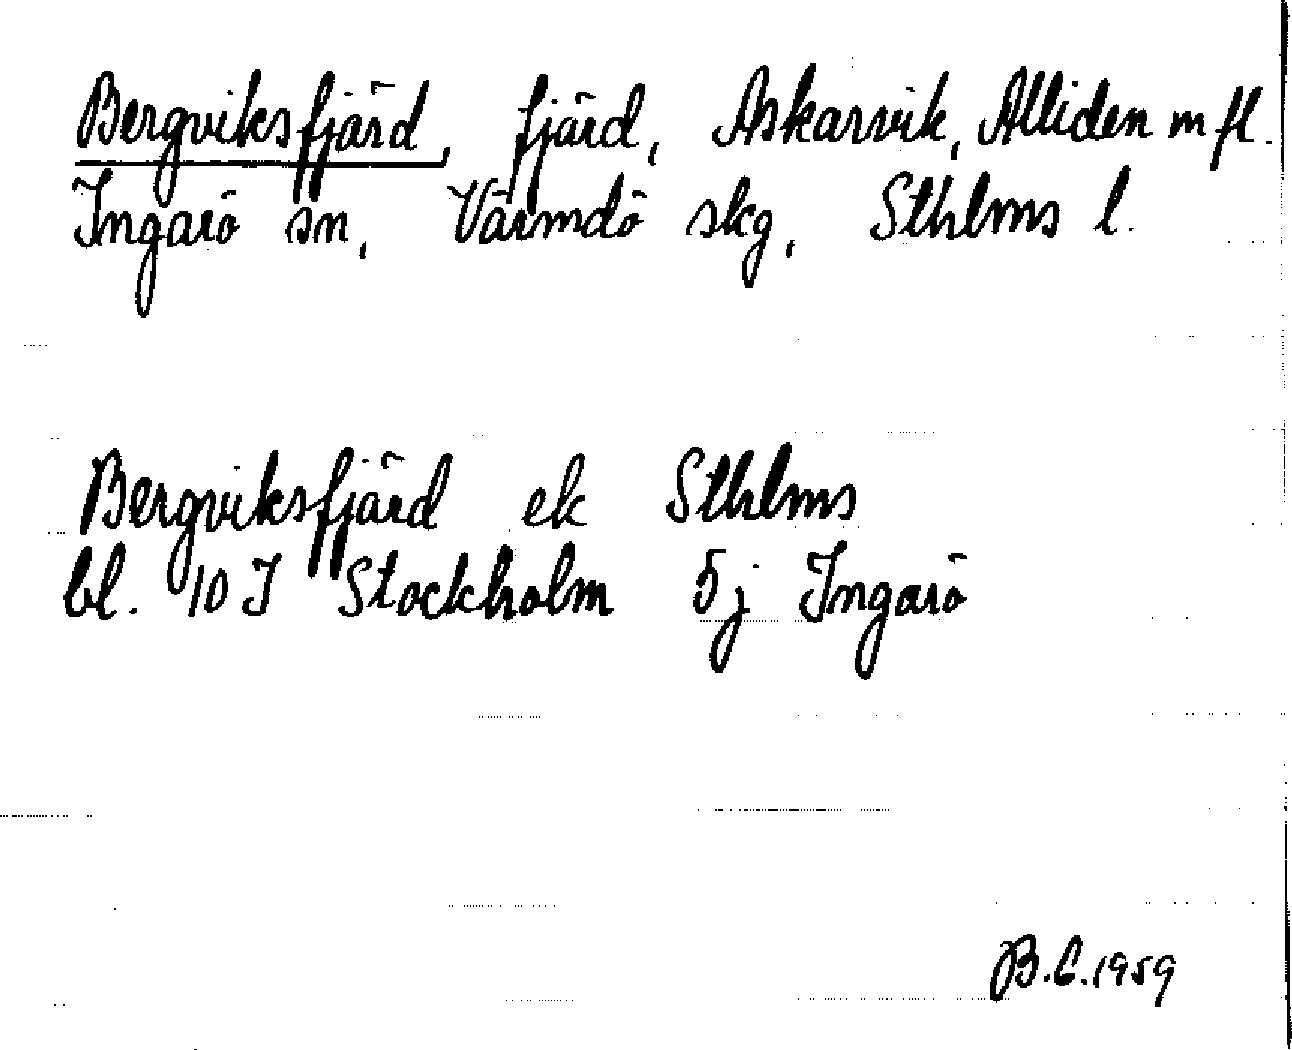 Bergviksfjärd, fjärd, Askarvik, Alliden m fl.
Ingarö sn, Värmdö skg, Sthlms l.
Bergviksfjärd ek Sthlms
bl. 10 I Stockholm 5j Ingarö
B.C. 1959